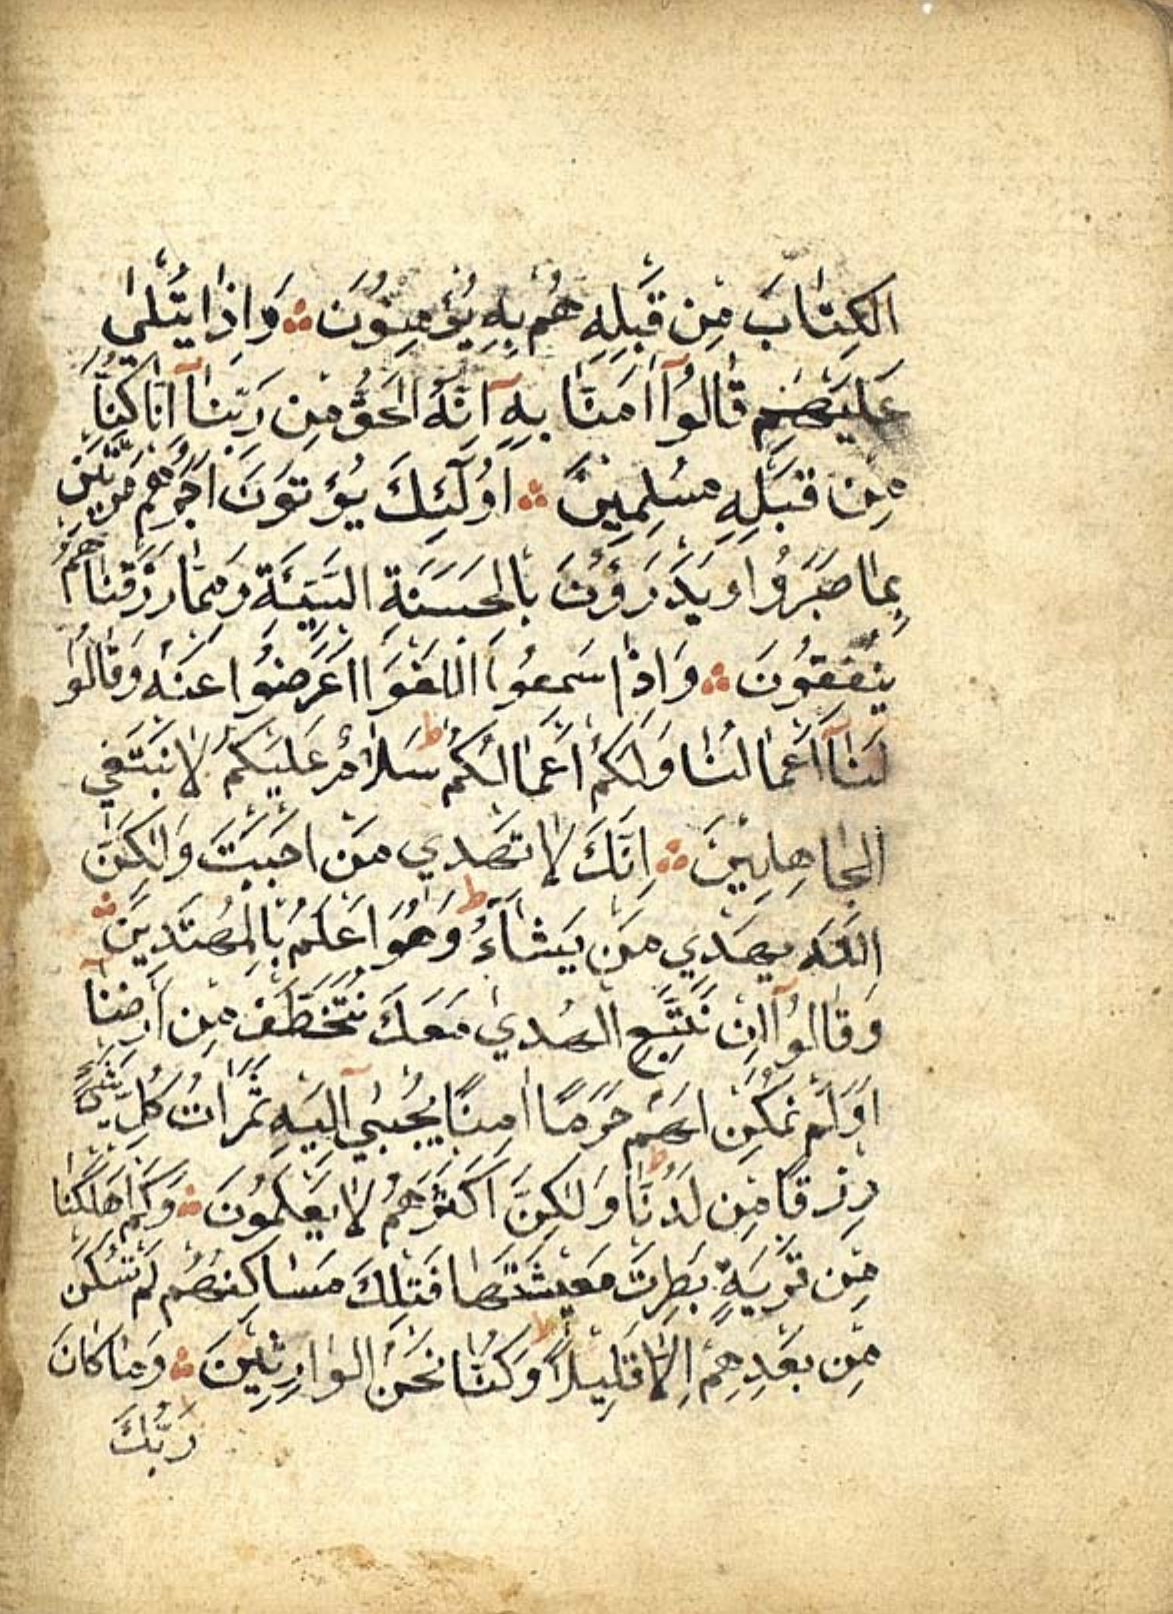 الكِتَابَ مِن قَبْلِهِ هُم بِهِ يُؤْمِنُونَ ۞ وَاِذَا يُتْلٰي
عَلَيْهِم قَالُوآ اٰمَنَّا بِهٖٓ اِنَّهُ الحَقُّ مِن رَبِّنَآ اِنَّا كُنَّا
مِن قَبْلِهِ مُسْلِمِينَ ۞ اُولٰٓئِكَ يُؤْتَوْنَ اَجْرَهُم مَرَّتَيْنِ
بِمَا صَبَرُوا وَيَدْرَؤُنَ بِالْحَسَنَةِ السَّيِّئَةِ وَمِمَّا رَزَقْنَاهُمْ
يُنْفِقُونَ ۞ وَاِذَا سَمِعُوا اللَّغْوَ اَعْرَضُوا عَنْهُ وَقَالُوا
لَنَآ اَعْمَالُنَا وَلَكُمْ اَعْمَالُكُمْ ط سَلَامٌ عَلَيْكُمْ لَا نَبْتَغِي
الْجَاهِلِينَ ۞ اِنَّكَ لَا تَهْدِي مَنْ اَحْبَبْتَ وَلٰكِنَّ
اللّٰهَ يَهْدِي مَن يَشَآءُ ط وَهُوَ اَعْلَمُ بِالْمُهْتَدِينَ ۞
وَقَالُوآ اِنْ نَتَّبِعِ الْهُدٰي مَعَكَ نُتَخَطَّفْ مِن اَرْضِنَآ
اَوَلَمْ نُمَكِّن لَهُمْ حَرَمًا اٰمِنًا يُجْبٰيٓ اِلَيْهِ ثَمَرَاتُ كُلِّ شَيْءٍ
رِزْقًا مِن لَدُنَّا ط وَلٰكِنَّ اَكْثَرَهُمْ لَا يَعْلَمُونَ ۞ وَكَمْ اَهْلَكْنَا
مِن قَرْيَةٍ بَطِرَتْ مَعِيشَتَهَا فَتِلْكَ مَسَاكِنُهُمْ لَمْ تُسْكَنْ
مِن بَعْدِهِمْ اِلَّا قَلِيلًا ط وَكُنَّا نَحْنُ الْوَارِثِينَ ۞ وَمَا كَانَ
رَبُّكَ